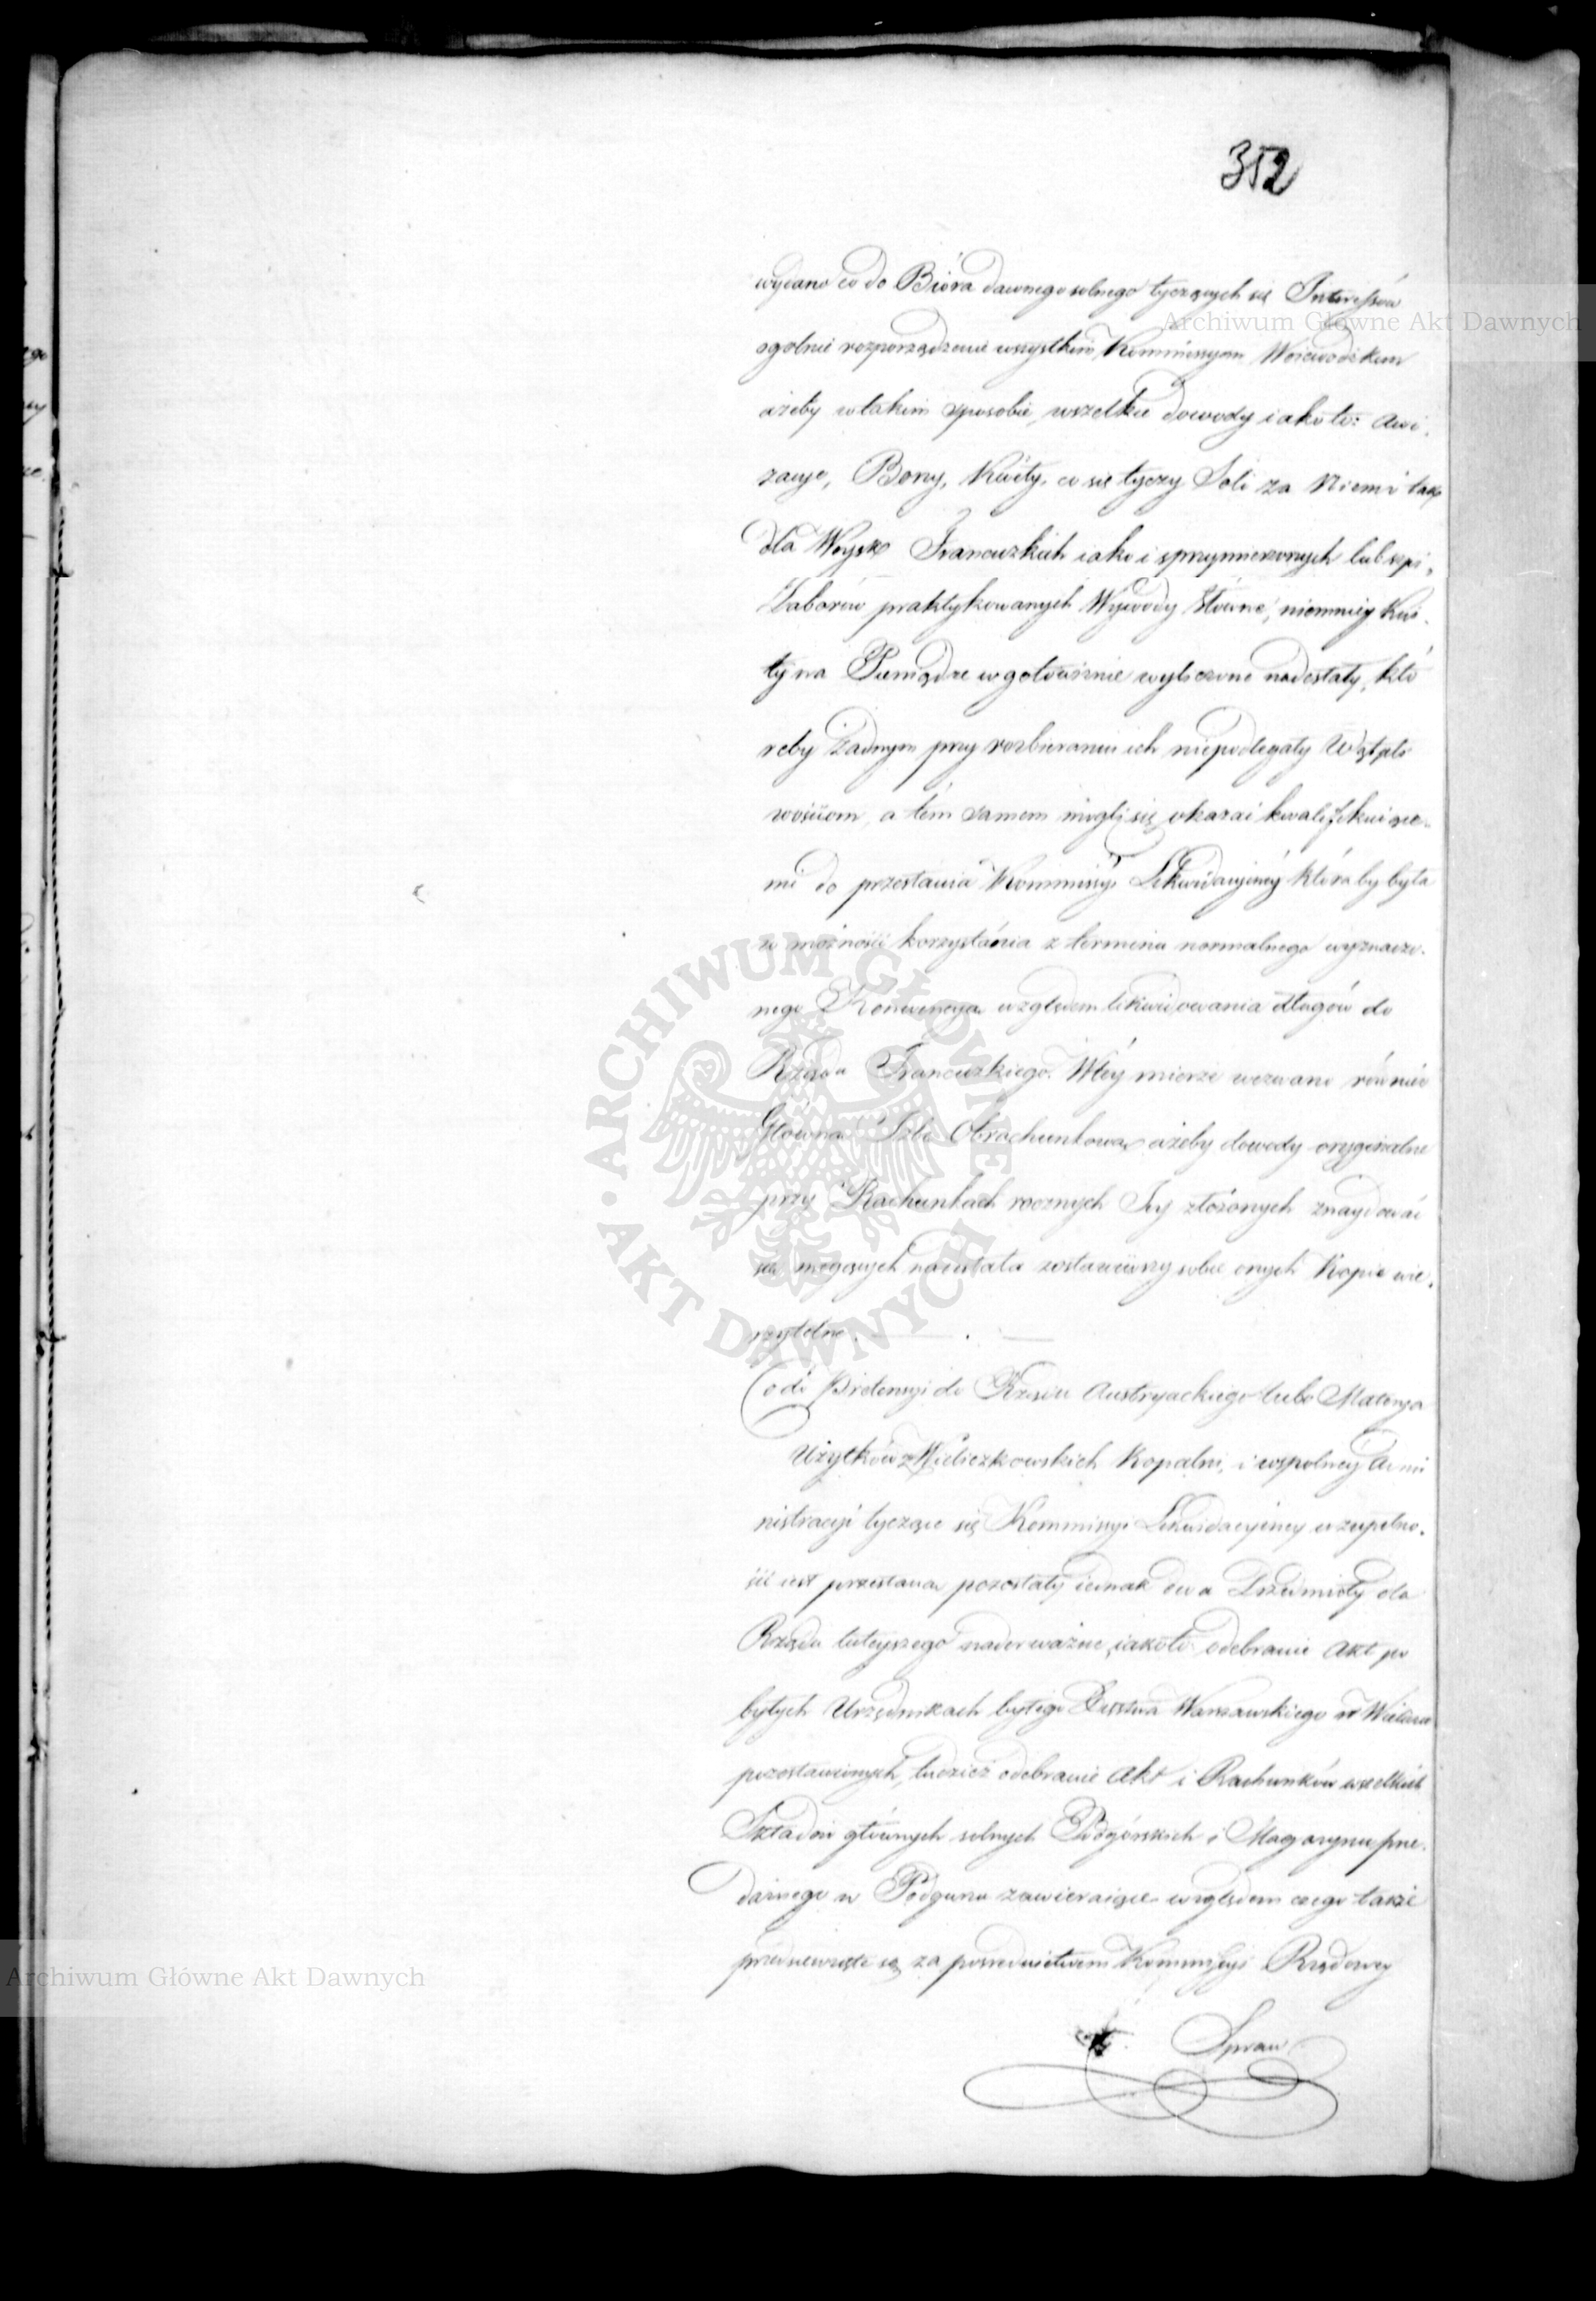 352
wydano co do Bióra dawnego solnego tyczących się Interessów
ogólnie rozporządzenie wszystkim Kommissyom Woiewodzkim
ażeby w takim sposobie wszelkie dowody iakoto: Awi-
zacye, Bony, Kwity, co się tyczy Soli za Niemi tak
dla Woysk Francuzkich iako i sprzymierzonych lub szpi-
praktykowanych Wywody słowne, niemniey Kwi-
ty na Pieniądze w gotowiźnie wyliczone nadesłały, któ
reby żadnym przy rozbieraniu ich niepodlegały Wątpli
wościom, a tém samem mogły się okazać kwalifikuiące-
mi do przesłania Kommissyi Likwidacyiney któraby była
w możności korzystania z terminu normalnego wyznaczo-
nego Konwencyą względem likwidowania długów do
Rządu Francuzkiego. W téy mierze wezwano również
Główną Izbę Obrachunkową ażeby dowody oryginalne
przy Rachunkach rocznych Jey złożonych znaydować
się mogących nadesłała zostawiwszy sobie onych Kopie wie-
rzytelne.
Co do Pretensyi do Rządu Austryackiego lubo Materya
Użytków z Wieliczkowskich Kopalni, i wspólney Admi
nistracyi tycząca się Kommissyi Likwidacyiney w zupełno-
ści iest przesłana pozostały iednak dwa Przedmioty dla
Rządu tuteyszego nader ważne, iakoto: odebranie Akt po
byłych Urzędnikach byłego Xięstwa Warszawskiego w
pozostawionych, tudzież odebranie Akt i Rachunków wszelkich
Składów głównych solnych Podgórskich i Magazynu prze-
dażnego w Podgórzu zawieraiące względem czego także
przedsięwzięte są za pośrednictwem Kommissyi Rządowey
Spraw
Archiwum Główne Akt Dawnych
Archiwum Główne Akt Dawnych
ARCHIWUM GŁÓWNE · AKT DAWNYCH ·